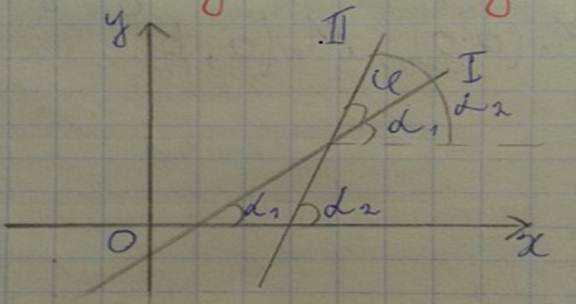 y
II
I
φ
α₂
α₁
α₁
α₂
O
x